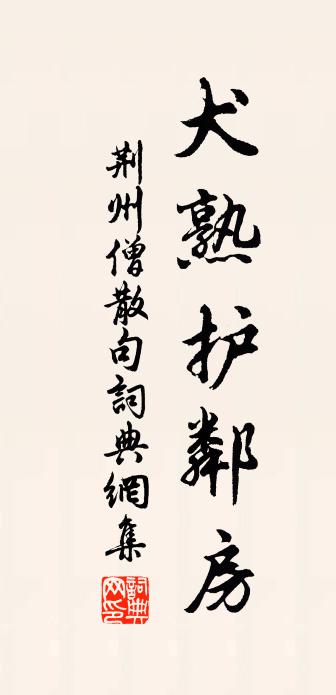 犬熟护鄰房
荆州僧散句詞典網集
詞典網印